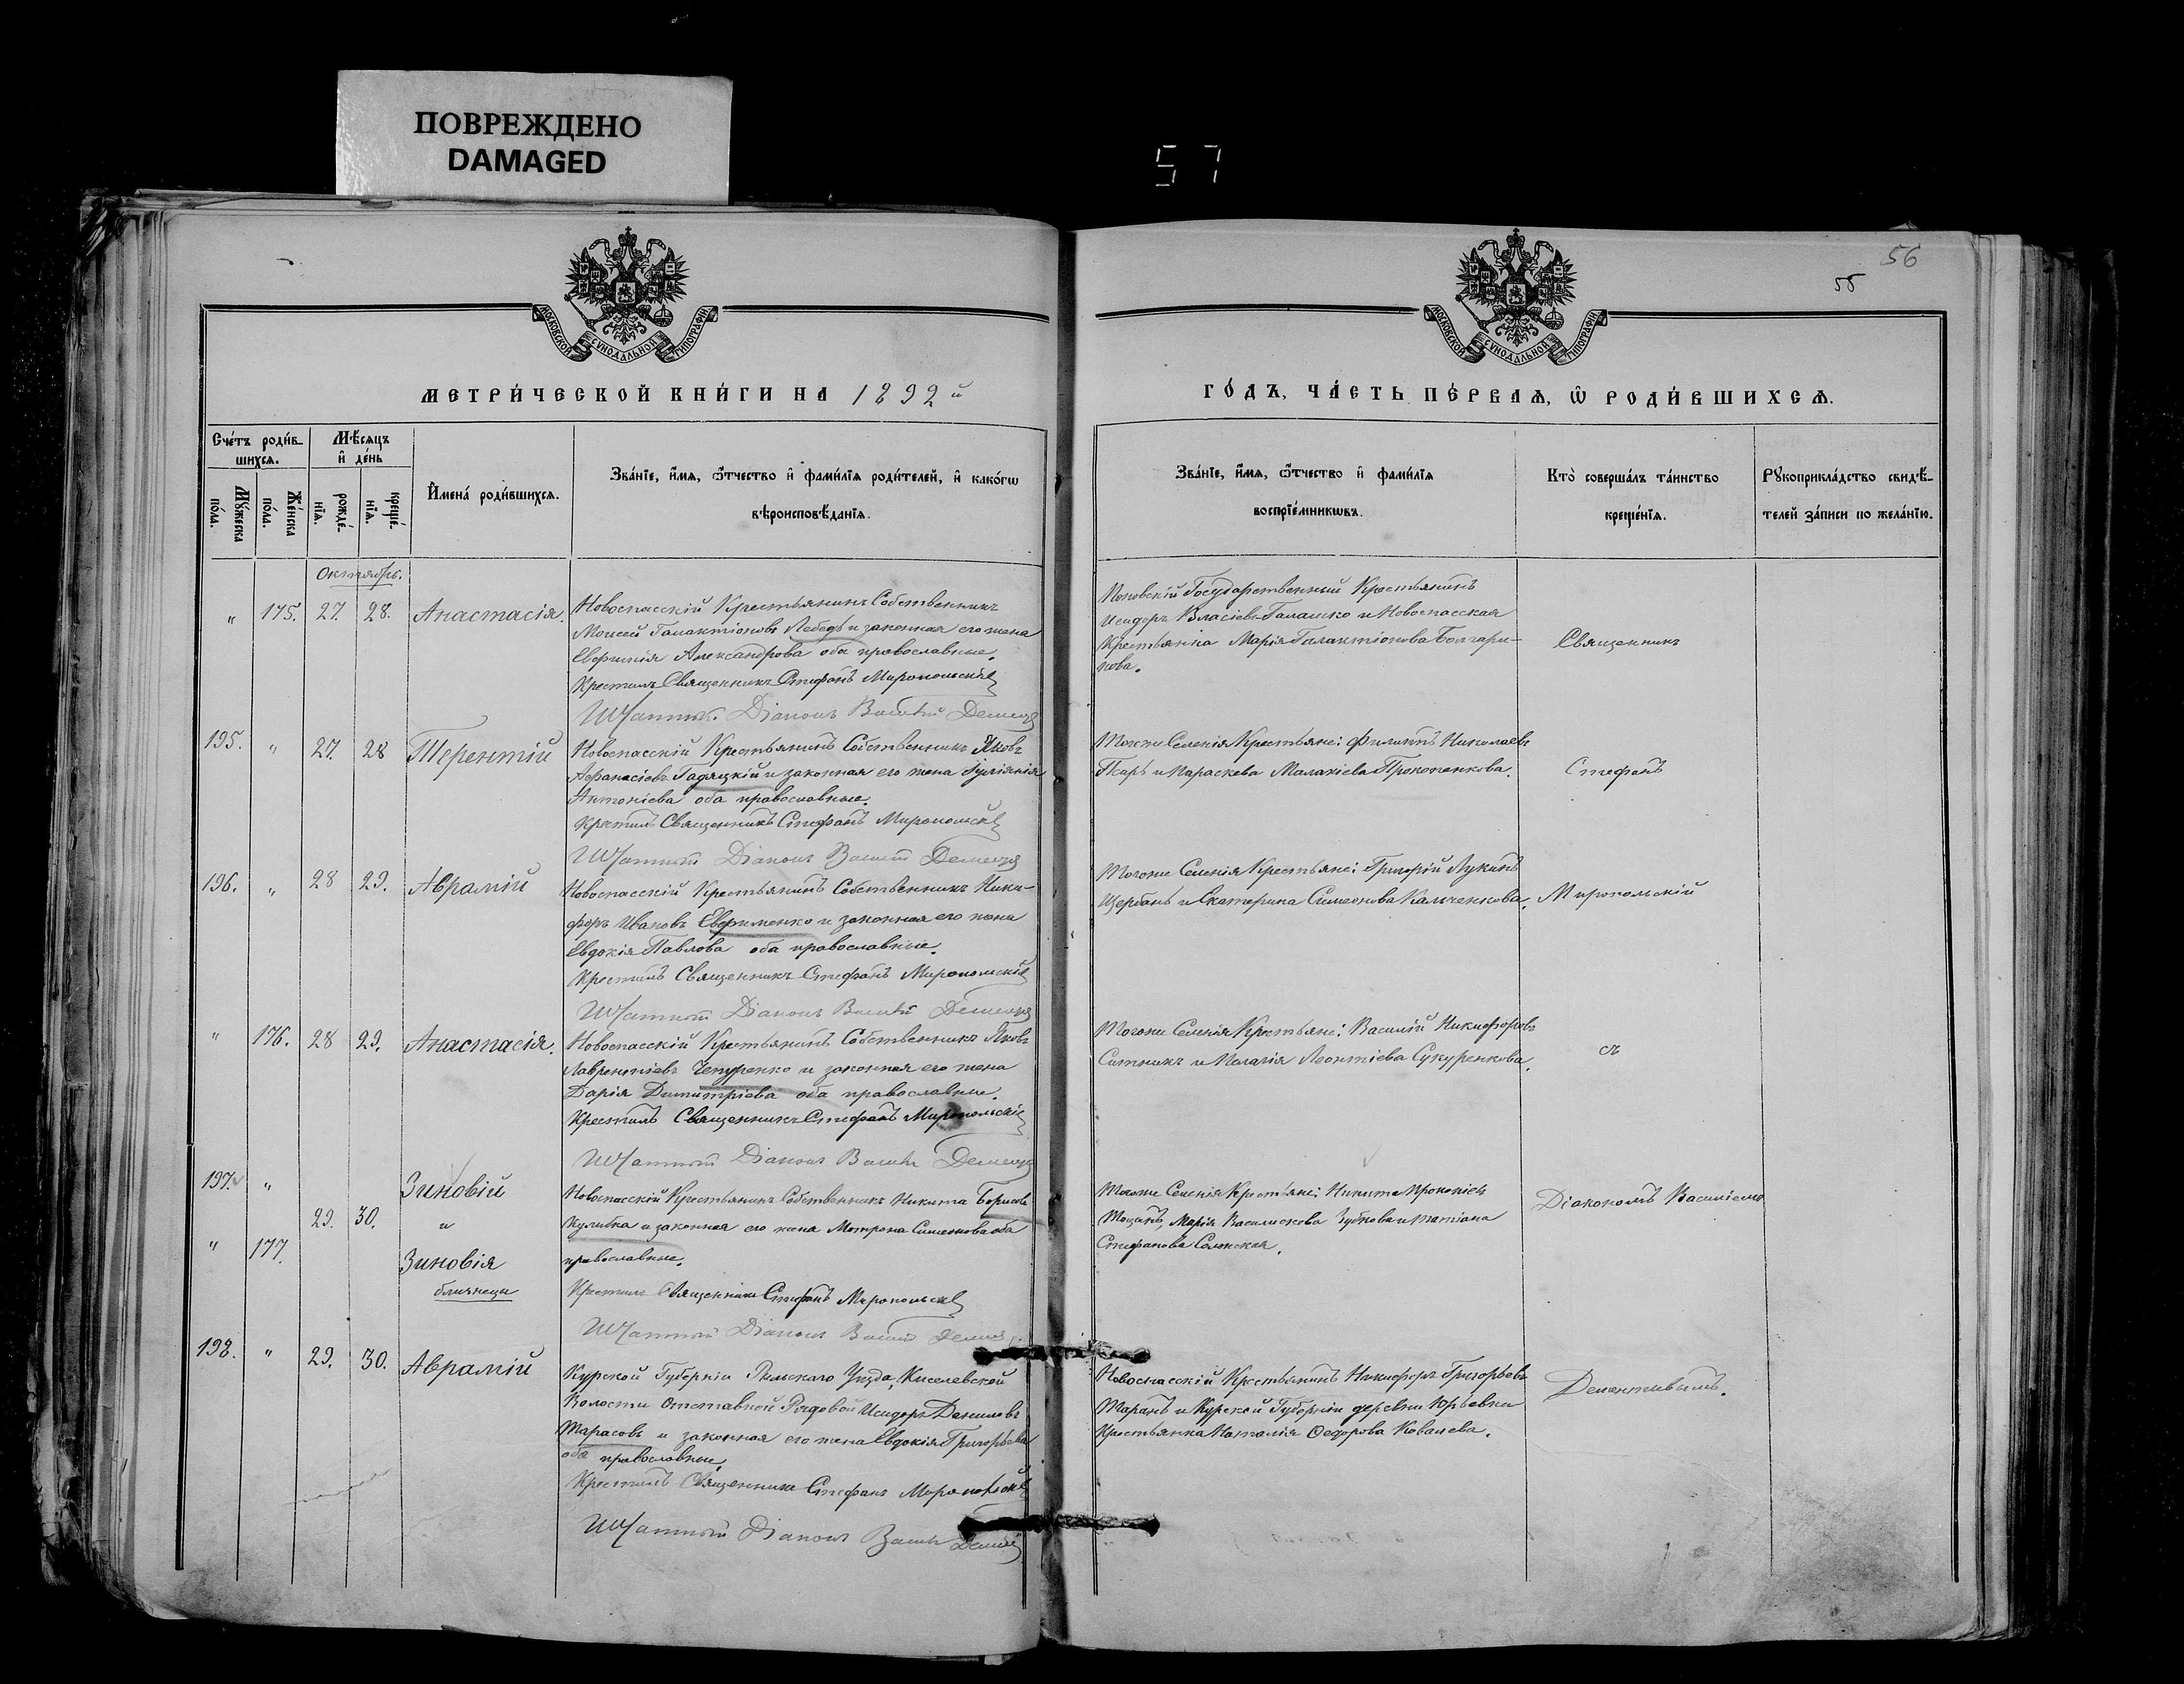 ПОВРЕЖДЕНО
DAMAGED
57
56
55
МОСКОВСКОЙ СѴНОДАЛЬНОЙ ТИПОГРАФІИ
МОСКОВСКОЙ СѴНОДАЛЬНОЙ ТИПОГРАФІИ
МЕТРИ́ЧЕСКОЙ КНИ́ГИ НА 1892й
ГО́ДЪ, ЧА́СТЬ ПЕ́РВАЯ, Ѡ҆ РОДИ́ВШИХСЯ.
Сче́тъ роди́в-
шихся.
Мѣ́сяцъ
и҆ де́нь
Мꙋ́жеска
по́ла.
Же́нска
по́ла.
рожде́-
нїя.
креще́-
нїя.
И҆мена̀ роди́вшихся.
Зва́нїе, и҆́мя, ѻ҆́тчество и҆ фами́лїя роди́телей, и҆ како́гѡ
вѣроисповѣ́данїя.
Зва́нїе, и҆́мя, ѻ҆́тчество и҆ фами́лїя
воспрїе́мникѡвъ.
Кто̀ соверша́лъ та́инство
креще́нїя.
Рꙋкоприкла́дство свидѣ́-
телей за́писи по жела́нїю.
Октябрь.
" 175. 27. 28. Анастасія.
Новоспасскій Крестьянинъ Собственникъ
Моисей Галактіоновъ Лебедь и законная его жена
Евфимія Александрова оба православные.
Крестилъ Священникъ Стефанъ Миропольскій
Штатный Діаконъ Василій
Поповскій Государственный Крестьянинъ
Исидоръ Власіевъ Галашко и Новоспасская
Крестьянка Марія Галактіонова Болгари-
нова.
Священникъ
195. " 27. 28 Терентій
Новоспасскій Крестьянинъ Собственникъ Яковъ
Афанасіевъ Гадяцкій и законная его жена Іуліянія
Антоніева оба православные.
Крестилъ Священникъ Стефанъ Миропольскій
Штатный Діаконъ Василій
Тогоже Селенія Крестьяне: Филиппъ Николаевъ
Псарь и Параскева Малахіева Прокопенкова.
Стефанъ
196. " 28 29. Аврамій
Новоспасскій Крестьянинъ Собственникъ Ники-
форъ Ивановъ Евфименко и законная его жена
Евдокія Павлова оба православные.
Крестилъ Священникъ Стефанъ Миропольскій
Штатный Діаконъ Василій
Тогоже Селенія Крестьяне: Григорій Лукинъ
Щербань и Екатерина Симеонова Кальченкова.
Миропольскій
" 176. 28 29. Анастасія.
Новоспасскій Крестьянинъ Собственникъ Яковъ
Лаврентіевъ Чепуренко и законная его жена
Дарія Димитріева оба православные.
Крестилъ Священникъ Стефанъ Миропольскій
Штатный Діаконъ Василій
Тогоже Селенія Крестьяне: Василій Никифоровъ
Ситникъ и Пелагія Леонтіева Сукуренкова.
съ
197. " Зиновій
29. 30. и
" 177. Зиновія
близнецы
Новоспасскій Крестьянинъ Собственникъ Никита Борисовъ
Кулибка и законная его жена Матрона Симеонова оба
православные.
Крестилъ Священникъ Стефанъ Миропольскій
Штатный Діаконъ Василій
Тогоже Селенія Крестьяне: Никита Прокопіевъ
Марія Василискова Зубкова и Татіана
Стефанова
Діакономъ Василіемъ
198. " 29. 30. Аврамій
Курской Губерніи Рыльскаго Уѣзда, Киселевской
Волости Отставной Рядовой Исидоръ Даниловъ
Тарасовъ и законная его жена Евдокія Григорьева
оба православные.
Крестилъ Священникъ Стефанъ Миропольскій
Штатный Діаконъ Василій
Новоспасскій Крестьянинъ Никифоръ Григорьевъ
Таранъ и Курской Губерніи деревни Юрьевки
Крестьянка Наталія Федорова Ковалева.
Дементьевымъ.